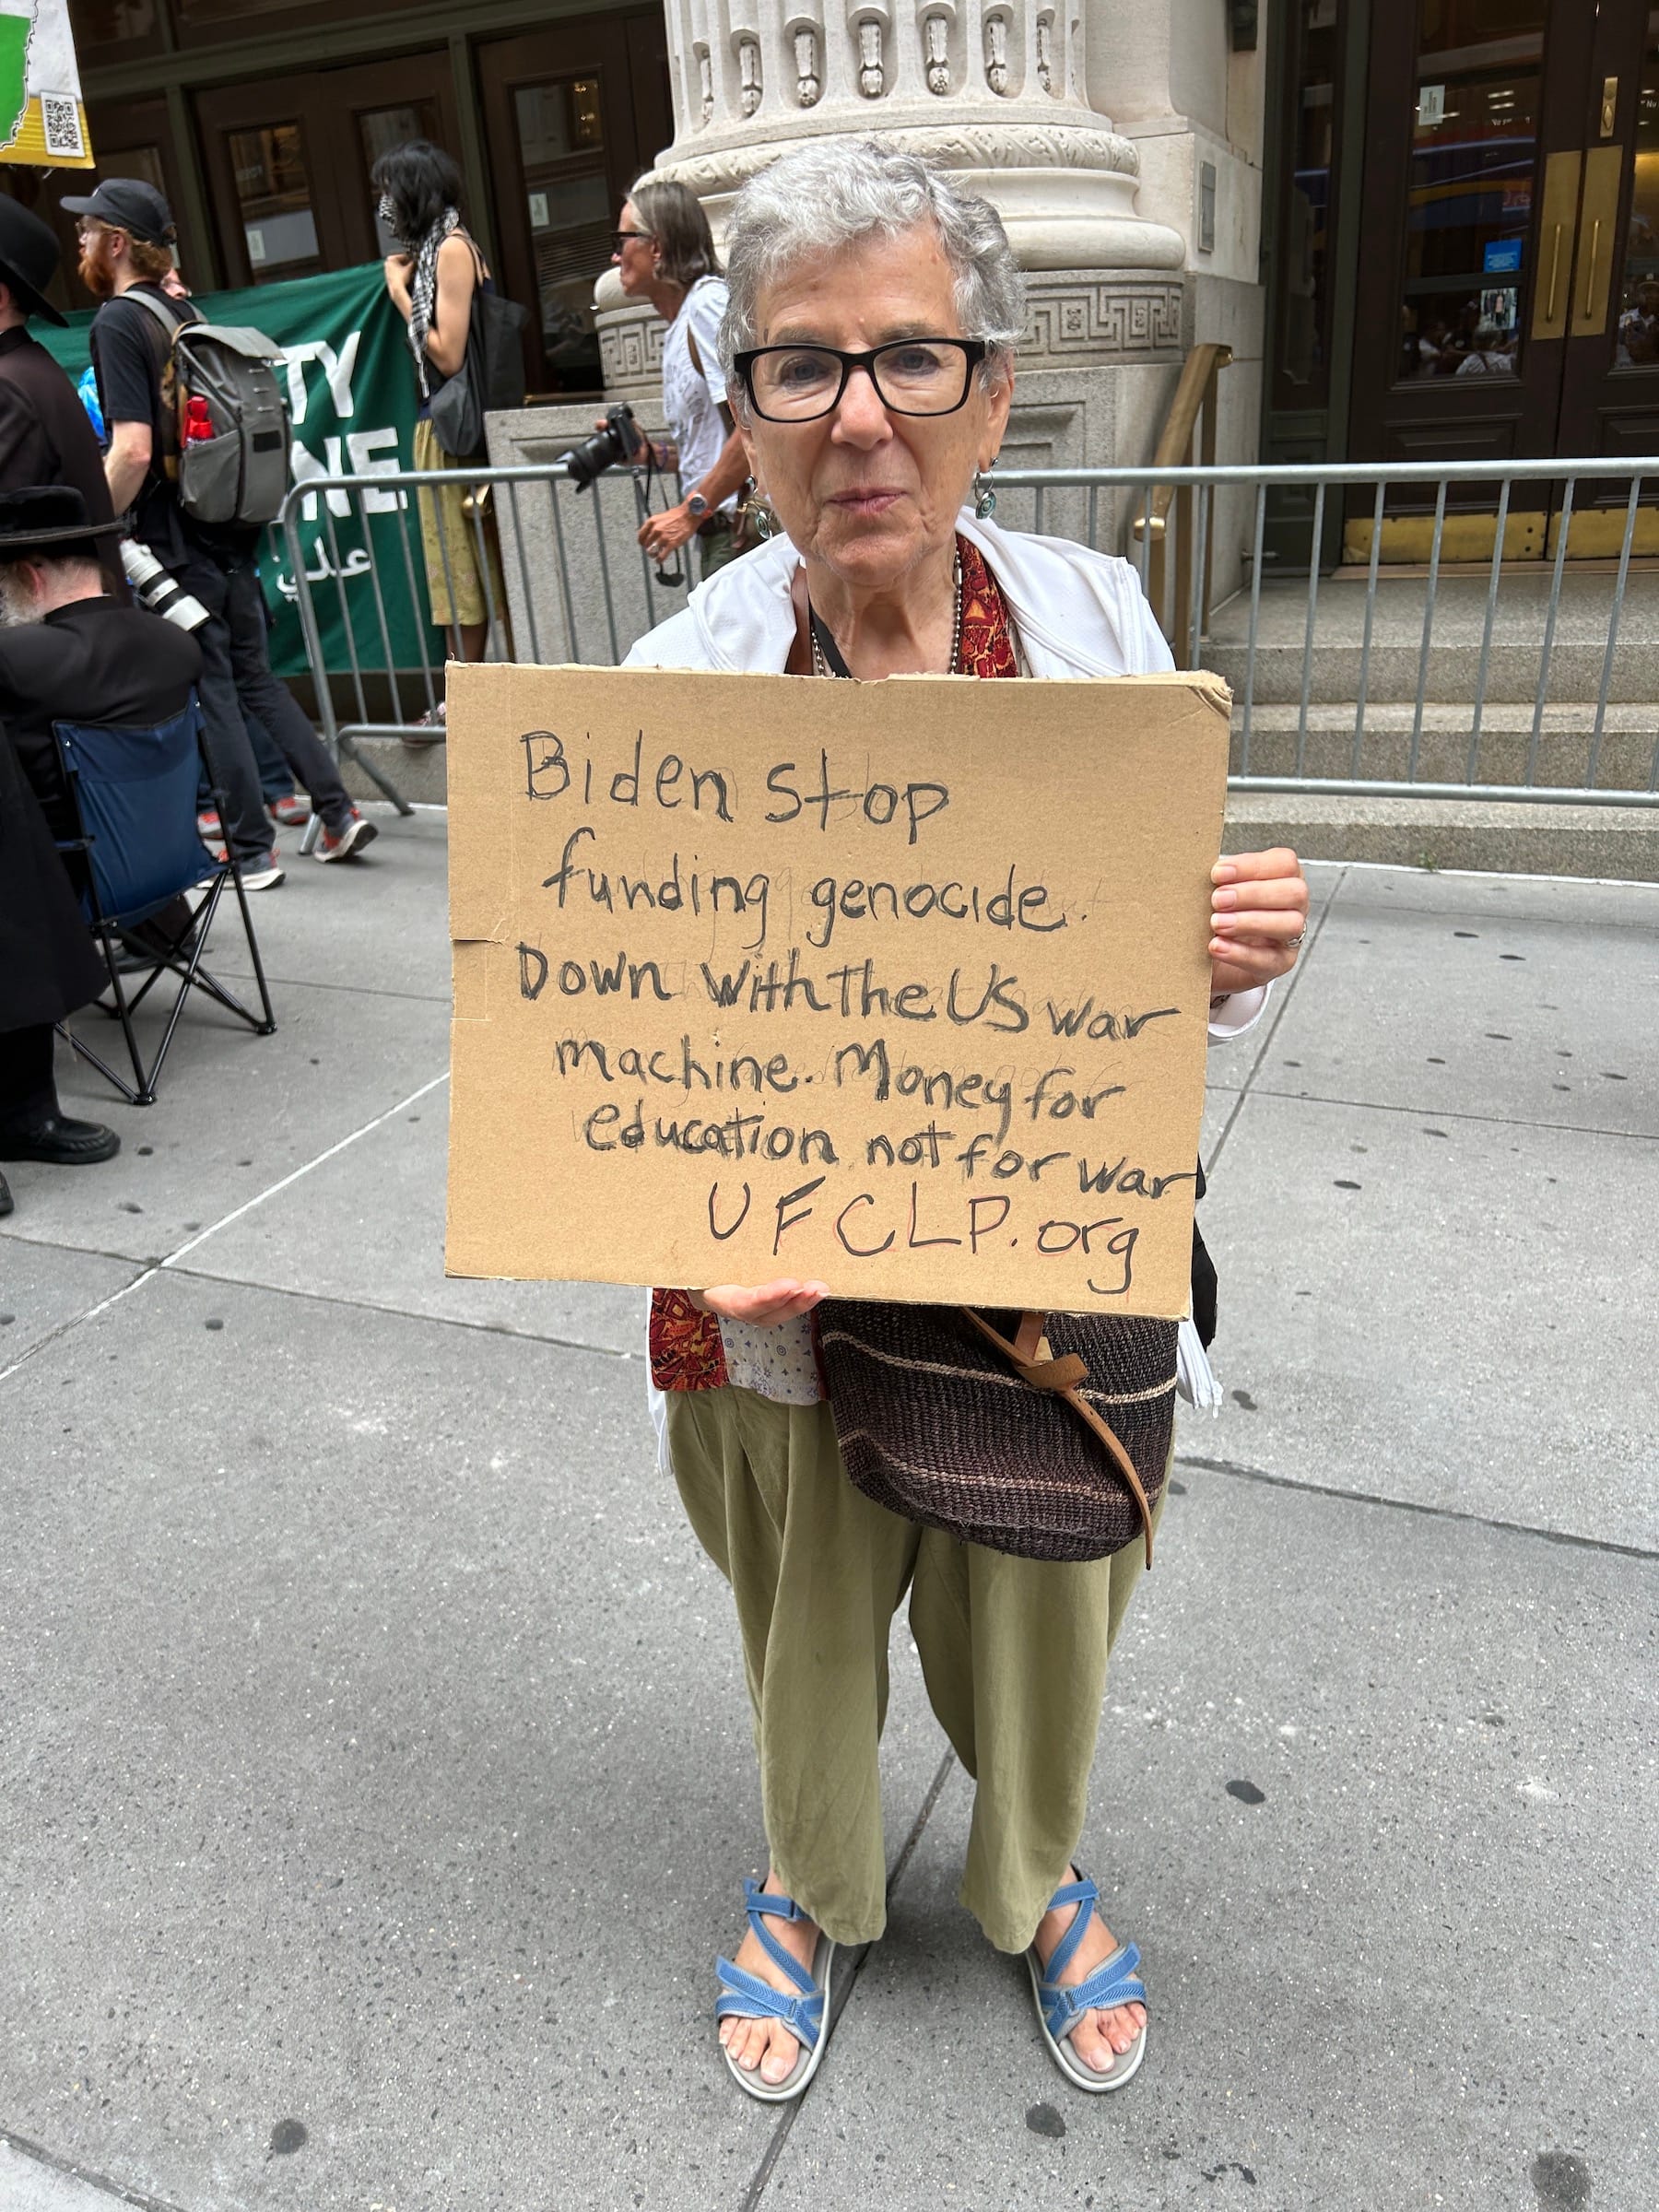 Biden stop
funding genocide.
Down with the US war
machine. Money for
education not for war
UFCLP.org
TY
NE
علي